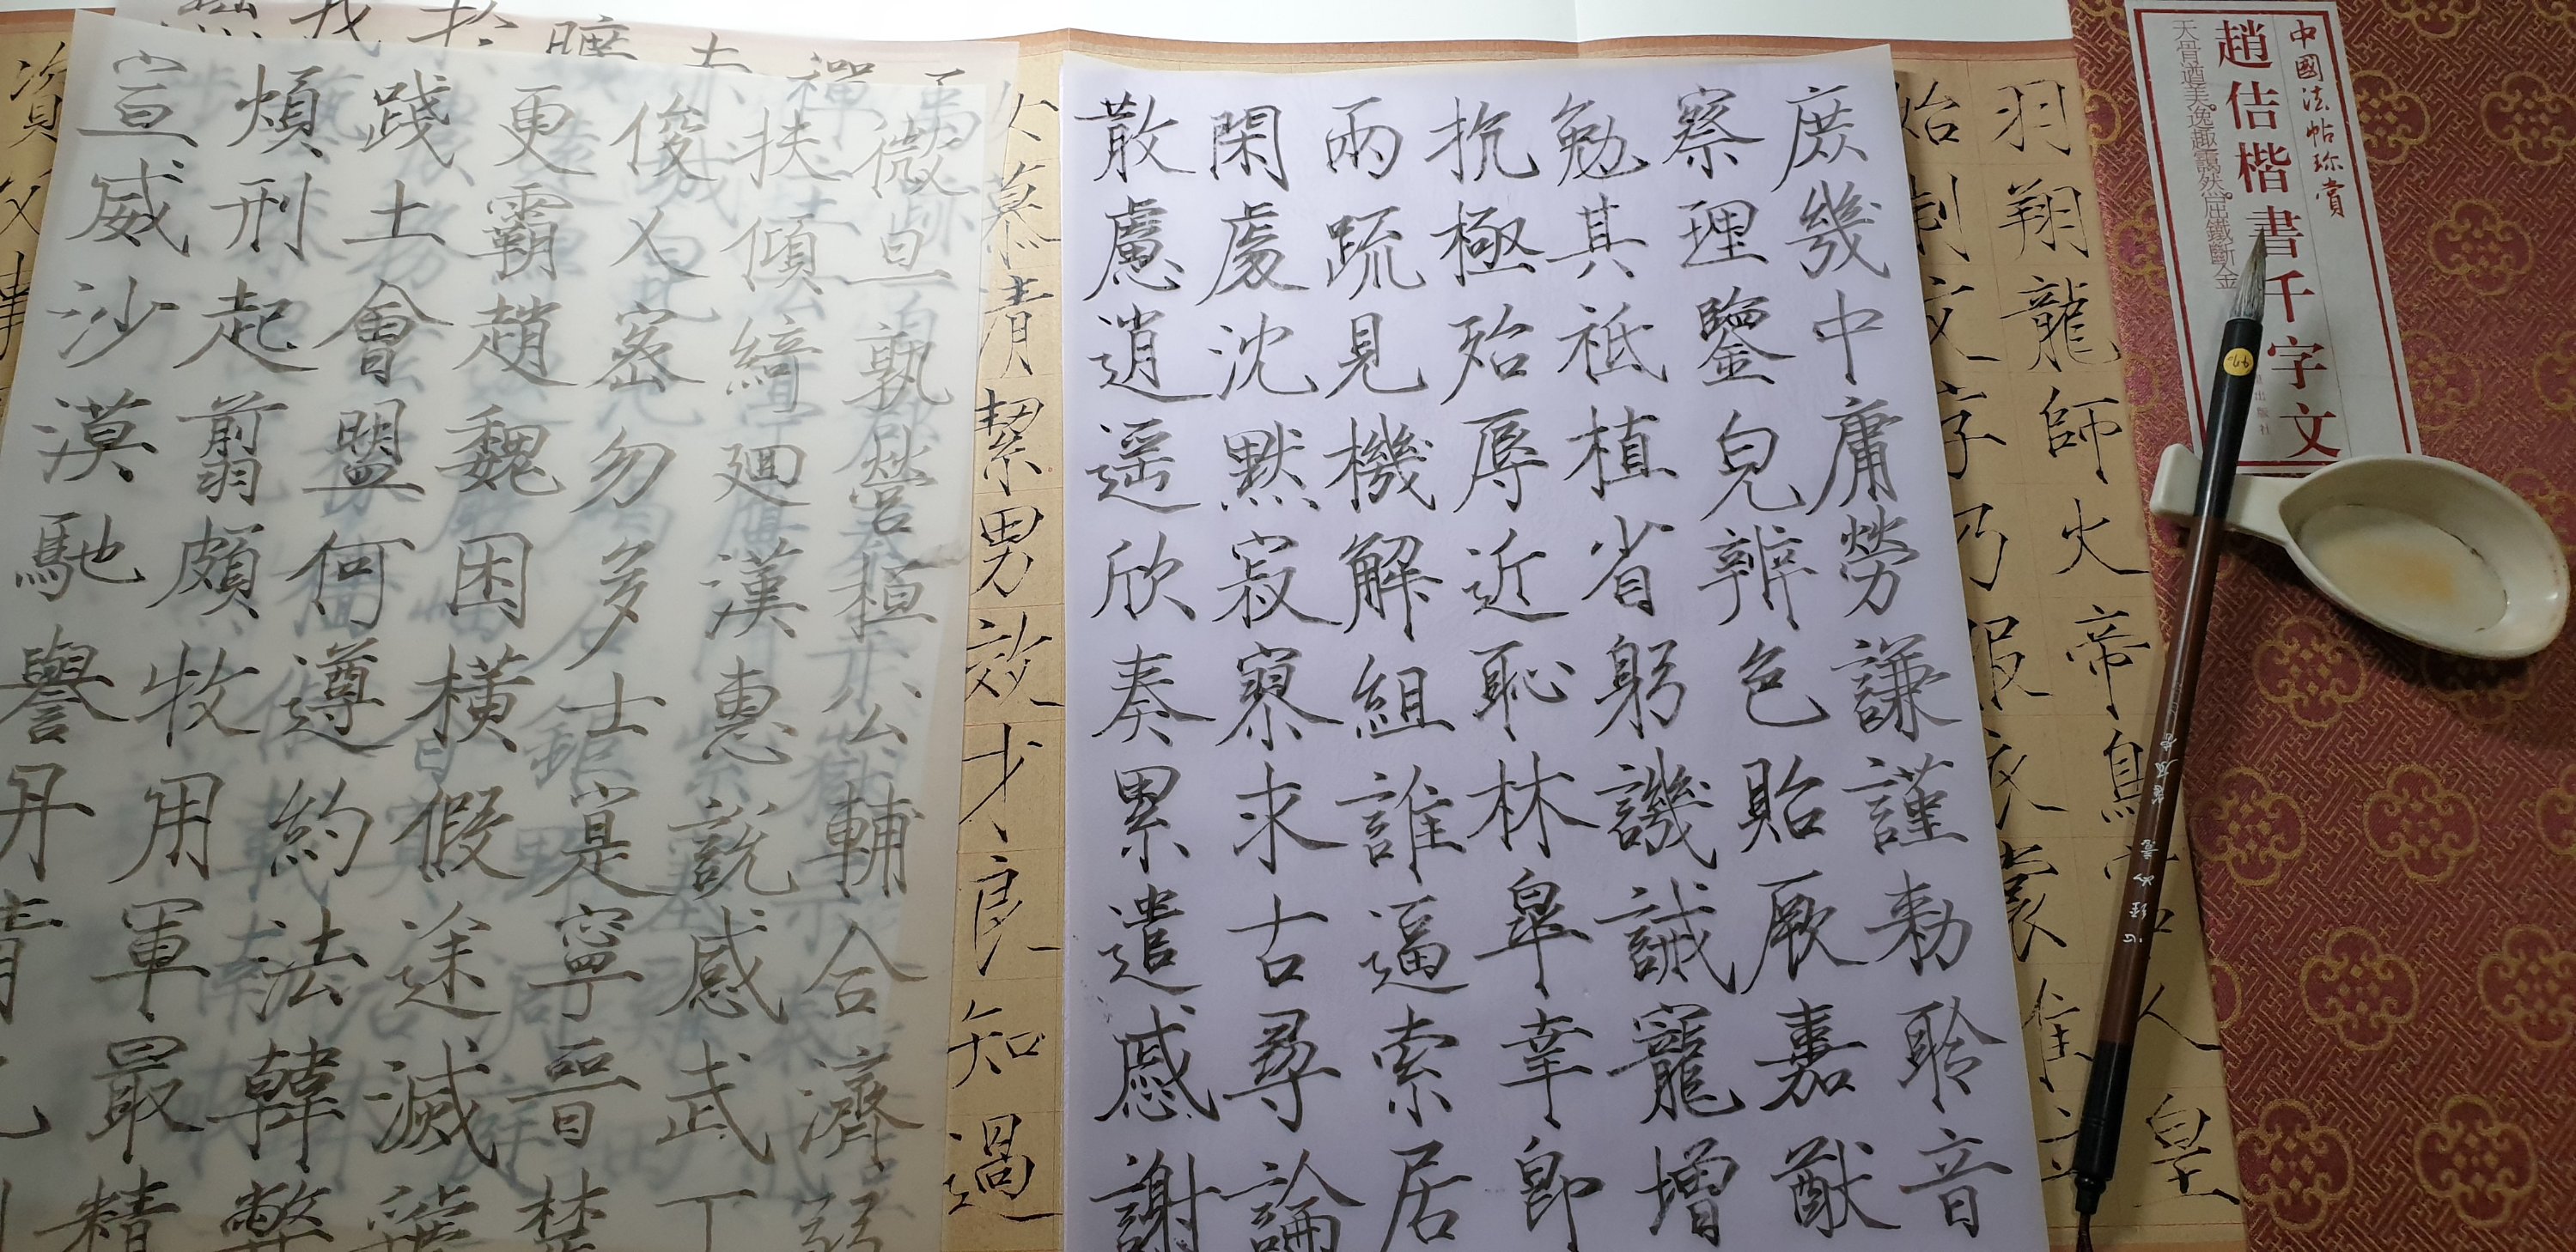 中國法帖珍賞
趙佶楷書千字文
天骨遒美逸趣靄然屈鐵斷金
出版社
羽翔龍師火帝鳥官人皇
始制文字乃服衣裳推位
庶幾中庸勞謙謹勅聆音
察理鑒皃辨色貽厥嘉猷
勉其祗植省躬譏誡寵增
抗極殆辱近恥林皋幸即
兩疏見機解組誰逼索居
閑處沈默寂寥求古尋論
散慮逍遥欣奏累遣慼謝
女慕清絜男效才良知過
微旦孰營桓公輔合濟弱
扶傾綺迴漢惠說感武丁
俊乂密勿多士寔寧晉楚
更霸趙魏困橫假途滅虢
踐土會盟何遵約法韓弊
煩刑起翦頗牧用軍最精
宣威沙漠馳譽丹青九
資父事